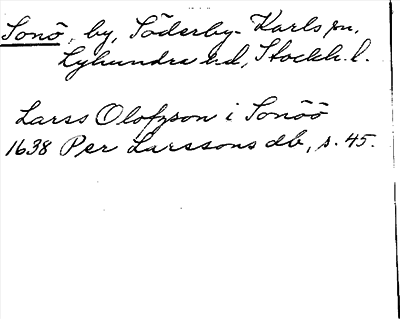 Sonö, by, Söderby-Karls sn,
Lyhundra hd, Stockh. l.
Larss Olofzson i Sonöö
1638 Per Larssons db, s. 45.